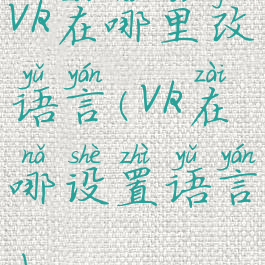 VR在哪里改
yǔ yán zài
语言(VR在
nǎ shè zhì yǔ yán
哪设置语言
)